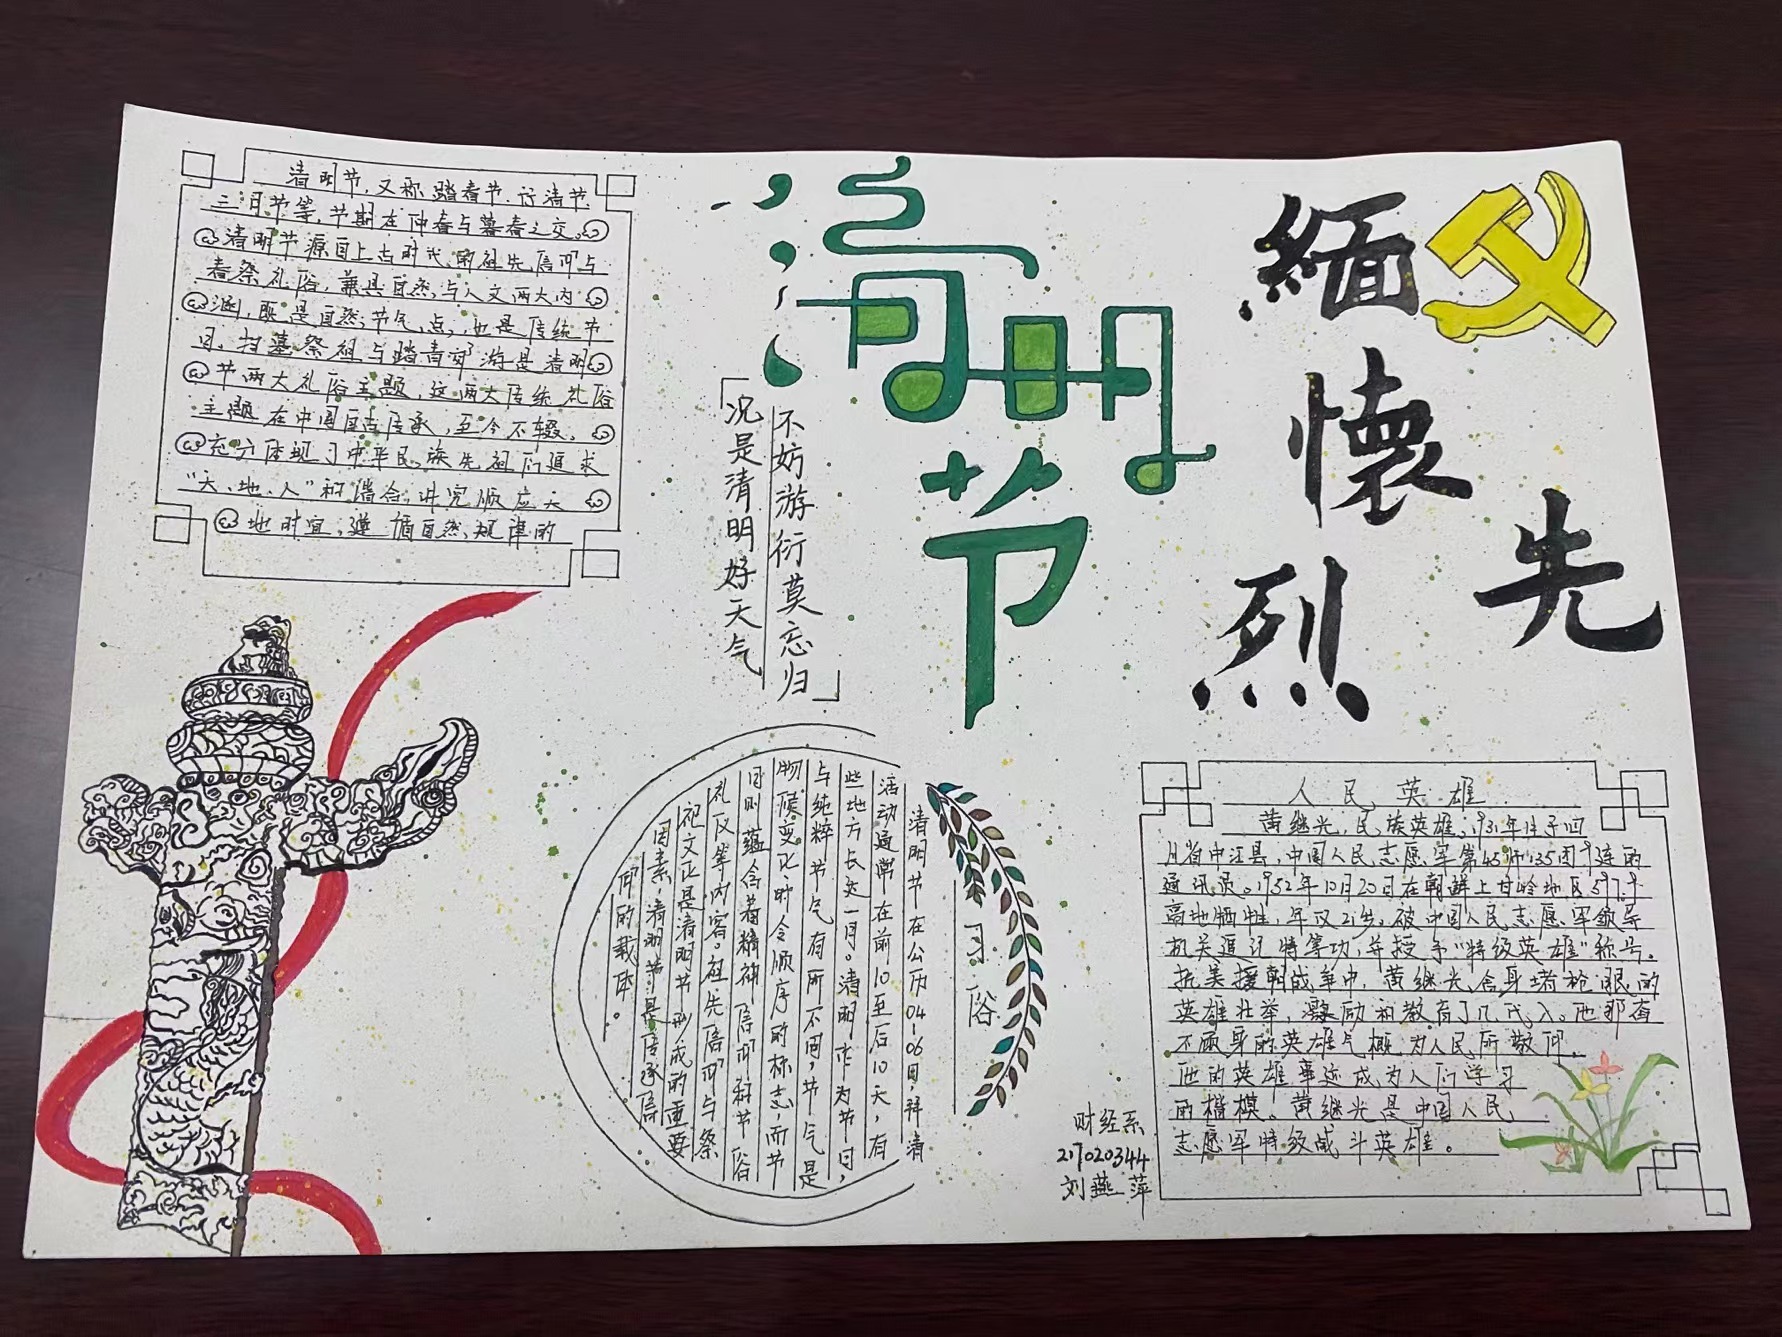 清明节，又称踏青节、行清节
三月节等，节期在仲春与暮春之交。
清明节源自上古时代的祖先信仰与
春祭礼俗，兼具自然与人文两大内
涵，既是自然节气点，也是传统节
日，扫墓祭祖与踏青郊游是清明
节两大礼俗主题，这两大传统礼俗
主题在中国自古传承，至今不辍。
充分体现了中华民族先祖们追求
“天、地、人”和谐合，讲究顺应天
地时宜，遵循自然规律的
清明节
「况是清明好天气
不妨游衍莫忘归」
缅
懷
先
烈
习俗
清明节在公历04-06日，拜清
活动通常在前10至后10天，有
些地方长达一月。清明作为节日，
与纯粹节气有所不同，节气是
物候变化时令顺序的标志，而节
日则蕴含着精神信仰和节俗
礼仪等内容。祖先信仰与祭
祀文化是清明节形成的重要
因素，清明节是传承信
仰的载体。
人民英雄
黄继光，民族英雄，1931年生于四
川省中江县，中国人民志愿军第45师135团9连的
通讯员。1952年10月20日在朝鲜上甘岭地区597.9
高地牺牲，年仅21岁。被中国人民志愿军领导
机关追记特等功，并授予“特级英雄”称号。
抗美援朝战争中，黄继光舍身堵枪眼的
英雄壮举，激励和教育了几代人。他那奋
不顾身的英雄气概为人民所敬仰。
他的英雄事迹成为人们学习
的楷模。黄继光是中国人民
志愿军特级战斗英雄。
财经系
217020344
刘燕萍